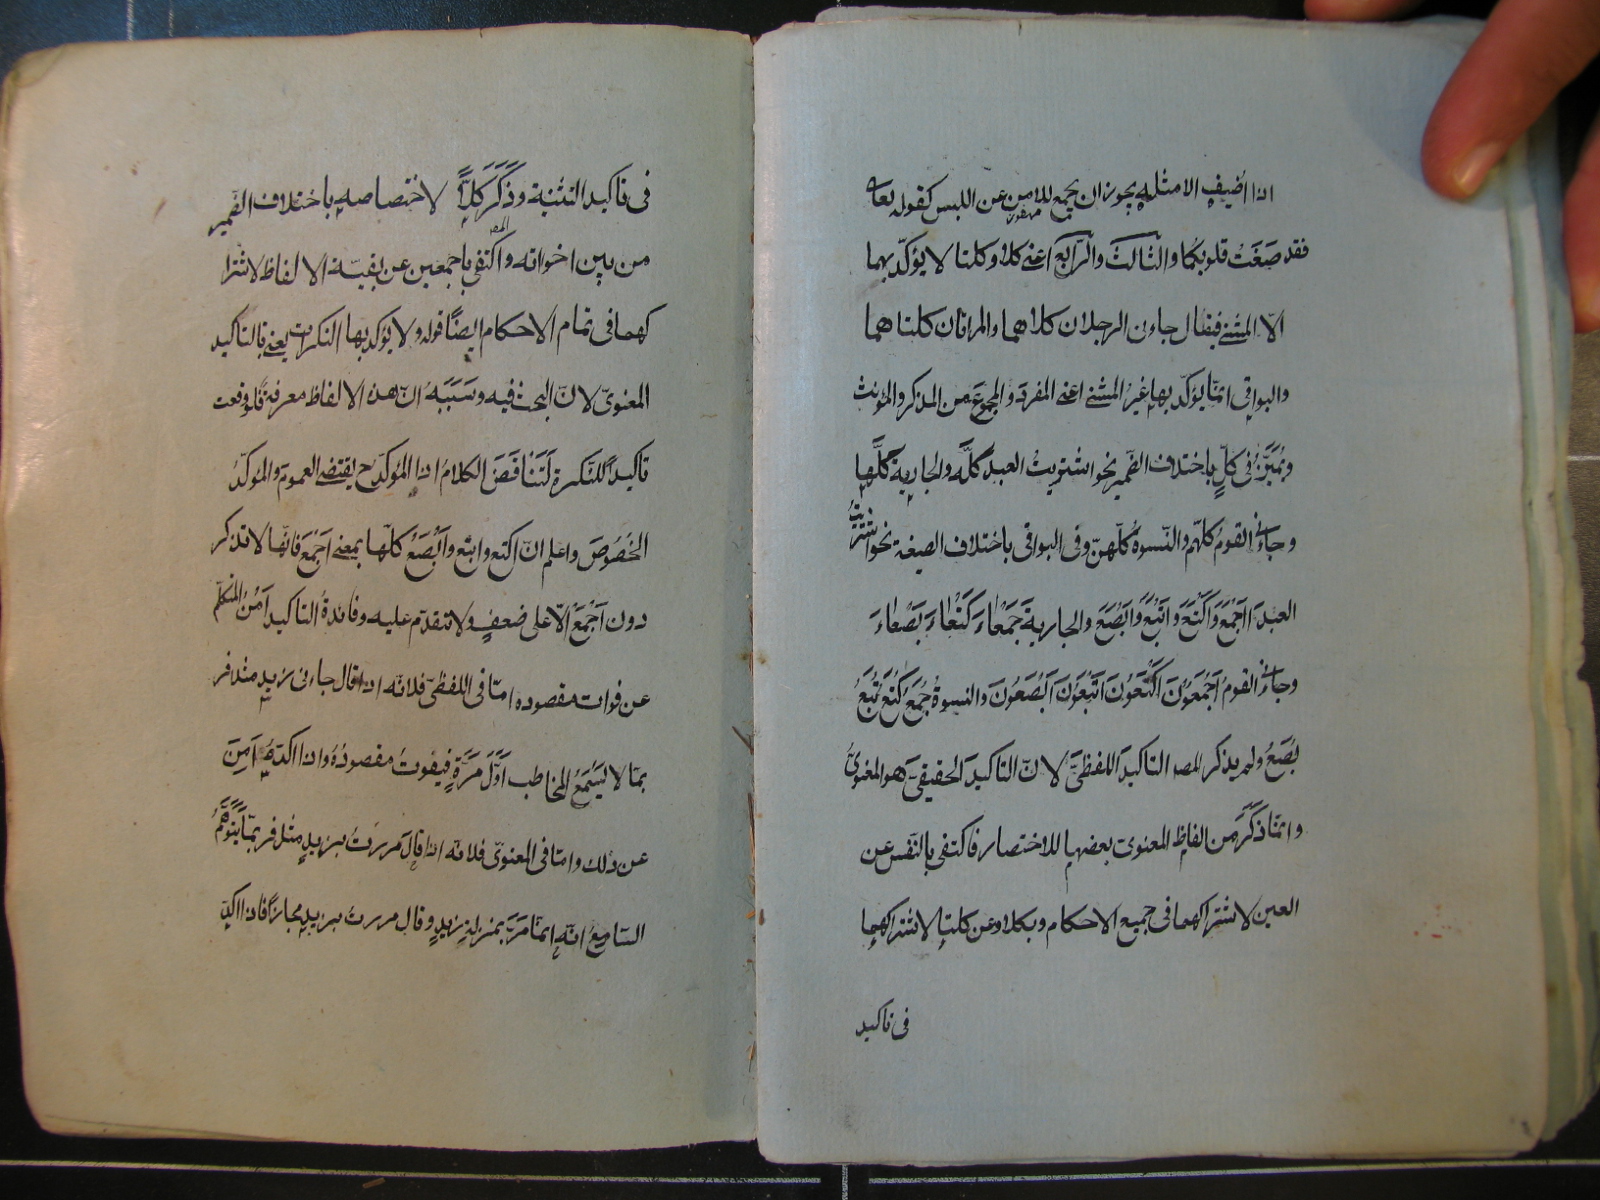 اذا اضيف الامثله يجوز ان يجمع للامن عن اللبس كقوله تعالى
فقد صَغَتْ قلوبكما والثالثَ والرابعَ اعنى كلا وكلتا لا يؤكّد بهما
الّا المثنى فيقال جاءنى الرجلان كلاهما والمراتان كلتاهما
والبواقى انّما يؤكّد بها غيرُ المثنى اعنى المفردَ والمجموعَ من المذكر والمؤنث
ويُمَيَّزُ فى كلٍّ باختلاف الضمير نحو اشتريتُ العبدَ كلَّه والجاريةَ كلَّها
وجاءنى القومُ كلّهم والنّسوةُ كلّهنّ وفى البواقى باختلاف الصيغة نحو اشتريتُ
العبدَ اَجْمَعَ وَاَكْتَعَ واَتْبَعَ واَبْصَعَ والجاريةَ جَمْعَاءَ كَتْعاءَ بَصْعاءَ
وجاءنى القومُ اَجْمَعُوْنَ اَكْتَعُوْنَ اَتْبَعُوْنَ اَبْصَعُوْنَ والنسوةُ جُمَعُ كُتَعُ تُبَعُ
بُصَعُ ولم يذكر المصـ التاكيدَ اللفظىَّ لانّ التاكيدَ الحقيقىَّ هو المعنوىُّ
وانّما ذَكَرَ من الفاظِ المعنوى بعضها للاختصار فاكتفى بالنَّفس عن
العين لاشتراكهما فى جميع الاحكام وبكلا وعن كلتا لاشتراكهما
فى تاكيد
فى تاكيد التثنية وذَكَرَ كلًّا لاختصاصه باختلاف الضمير
من بين اخواته واكتفى باجمعين عن بقيّة الالفاظ لاشترا
كهما فى تمام الاحكام ايضًا قوله ولا يؤكد بها النكرات يعنى بالتاكيد
المعنوىّ لانّ البحث فيه وسَبَبَهُ انّ هذه الالفاظ معرفة فلو وقعت
تاكيدًا للنّكرة لَتَنَاقَضَ الكلامُ اذا المؤكدح يقتضى العمومَ والمؤكّدُ
الخصُوصَ واعلم انّ اكتع وابتع واَبْصَعُ كلّها بمعنى اَجْمَعَ فانّها لا تذكر
دون اَجْمَعَ الّا على ضعفٍ ولا تتقدّم عليه وفائدةُ التاكيد اَمْنُ المتكلّم
عن فوات مقصوده امّا فى اللفظىّ فلانّه اذا قال جاءنى زيدٌ مثلا فر
بمّا لا يَسْمَعُ المخاطب اَوَّلَ مَرَّةٍ فيفوتُ مقصودُهُ واذا اكّدتهُ اَمِنَ
عن ذلك وامّا فى المعنوىّ فلانّه اذا قال مررتُ بزيدٍ مثلا فربّما يَتَوَهَّمُ
السّامعُ انّه انّما مَرَّ بمنزلةِ زيدٍ وقال مررتُ بزيدٍ مجازًا فاذا اكّد